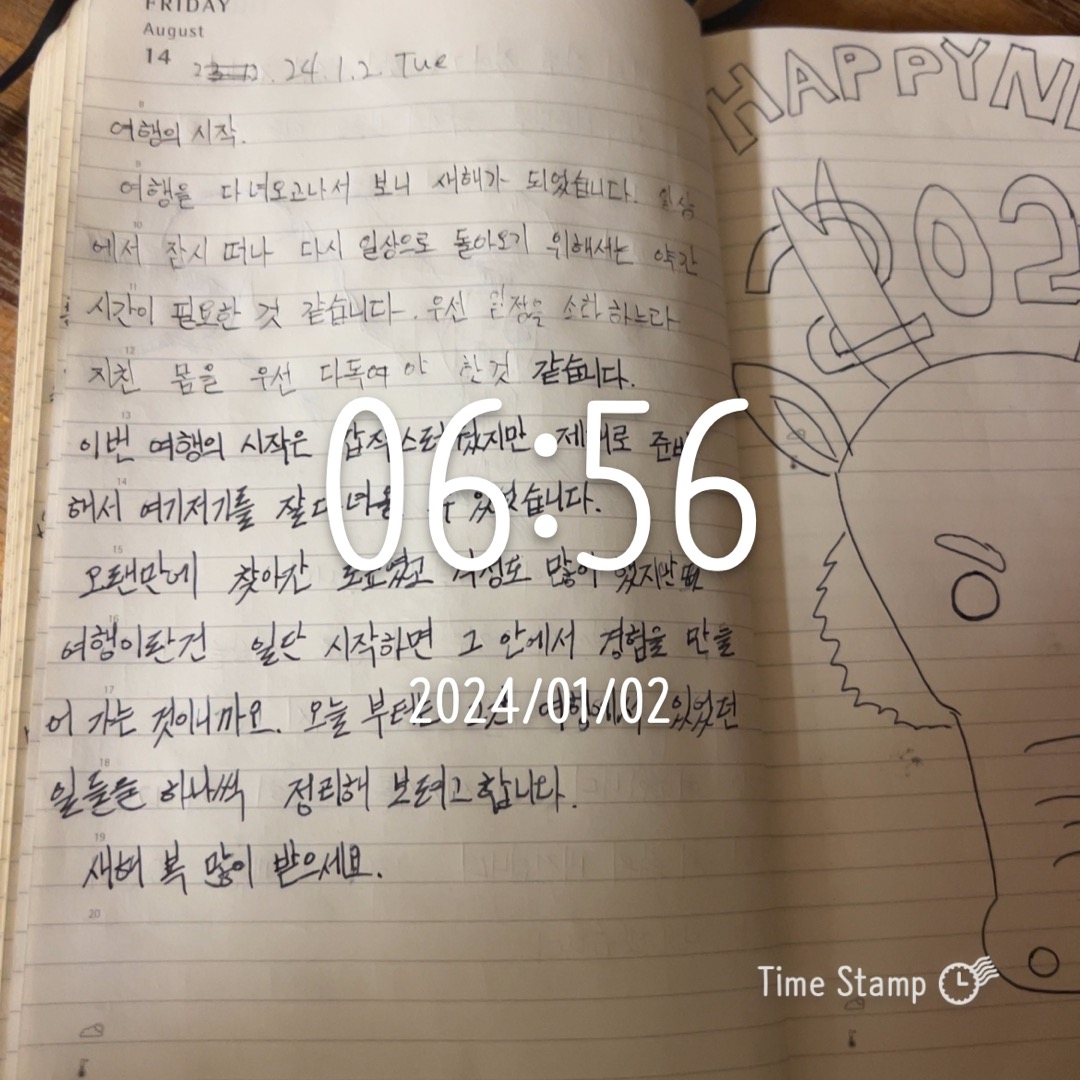 FRIDAY
August
14
24.1.2. Tue
8
여행의 시작.
9
여행을 다녀오고나서 보니 새해가 되었습니다. 일상
10
에서 잠시 떠나 다시 일상으로 돌아오기 위해서는 약간
11
시간이 필요한 것 같습니다. 우선 일정을 소화하느라
12
지친 몸을 우선 다독여야 한것 같습니다.
13
이번 여행의 시작은 갑작스러웠지만 제대로 준비
14
해서 여기저기를 잘다녀올 수 있었습니다.
15
오랜만에 찾아간 많이 했지만
16
여행이란건 일단 시작하면 그 안에서 경험을 만들
17
어 가는 것이니까요. 오늘 부터는 여행에서 있었던
18
일들을 하나씩 정리해 보려고합니다.
19
새해 복 많이 받으세요.
20
HAPPY
202
06:56
2024/01/02
Time Stamp